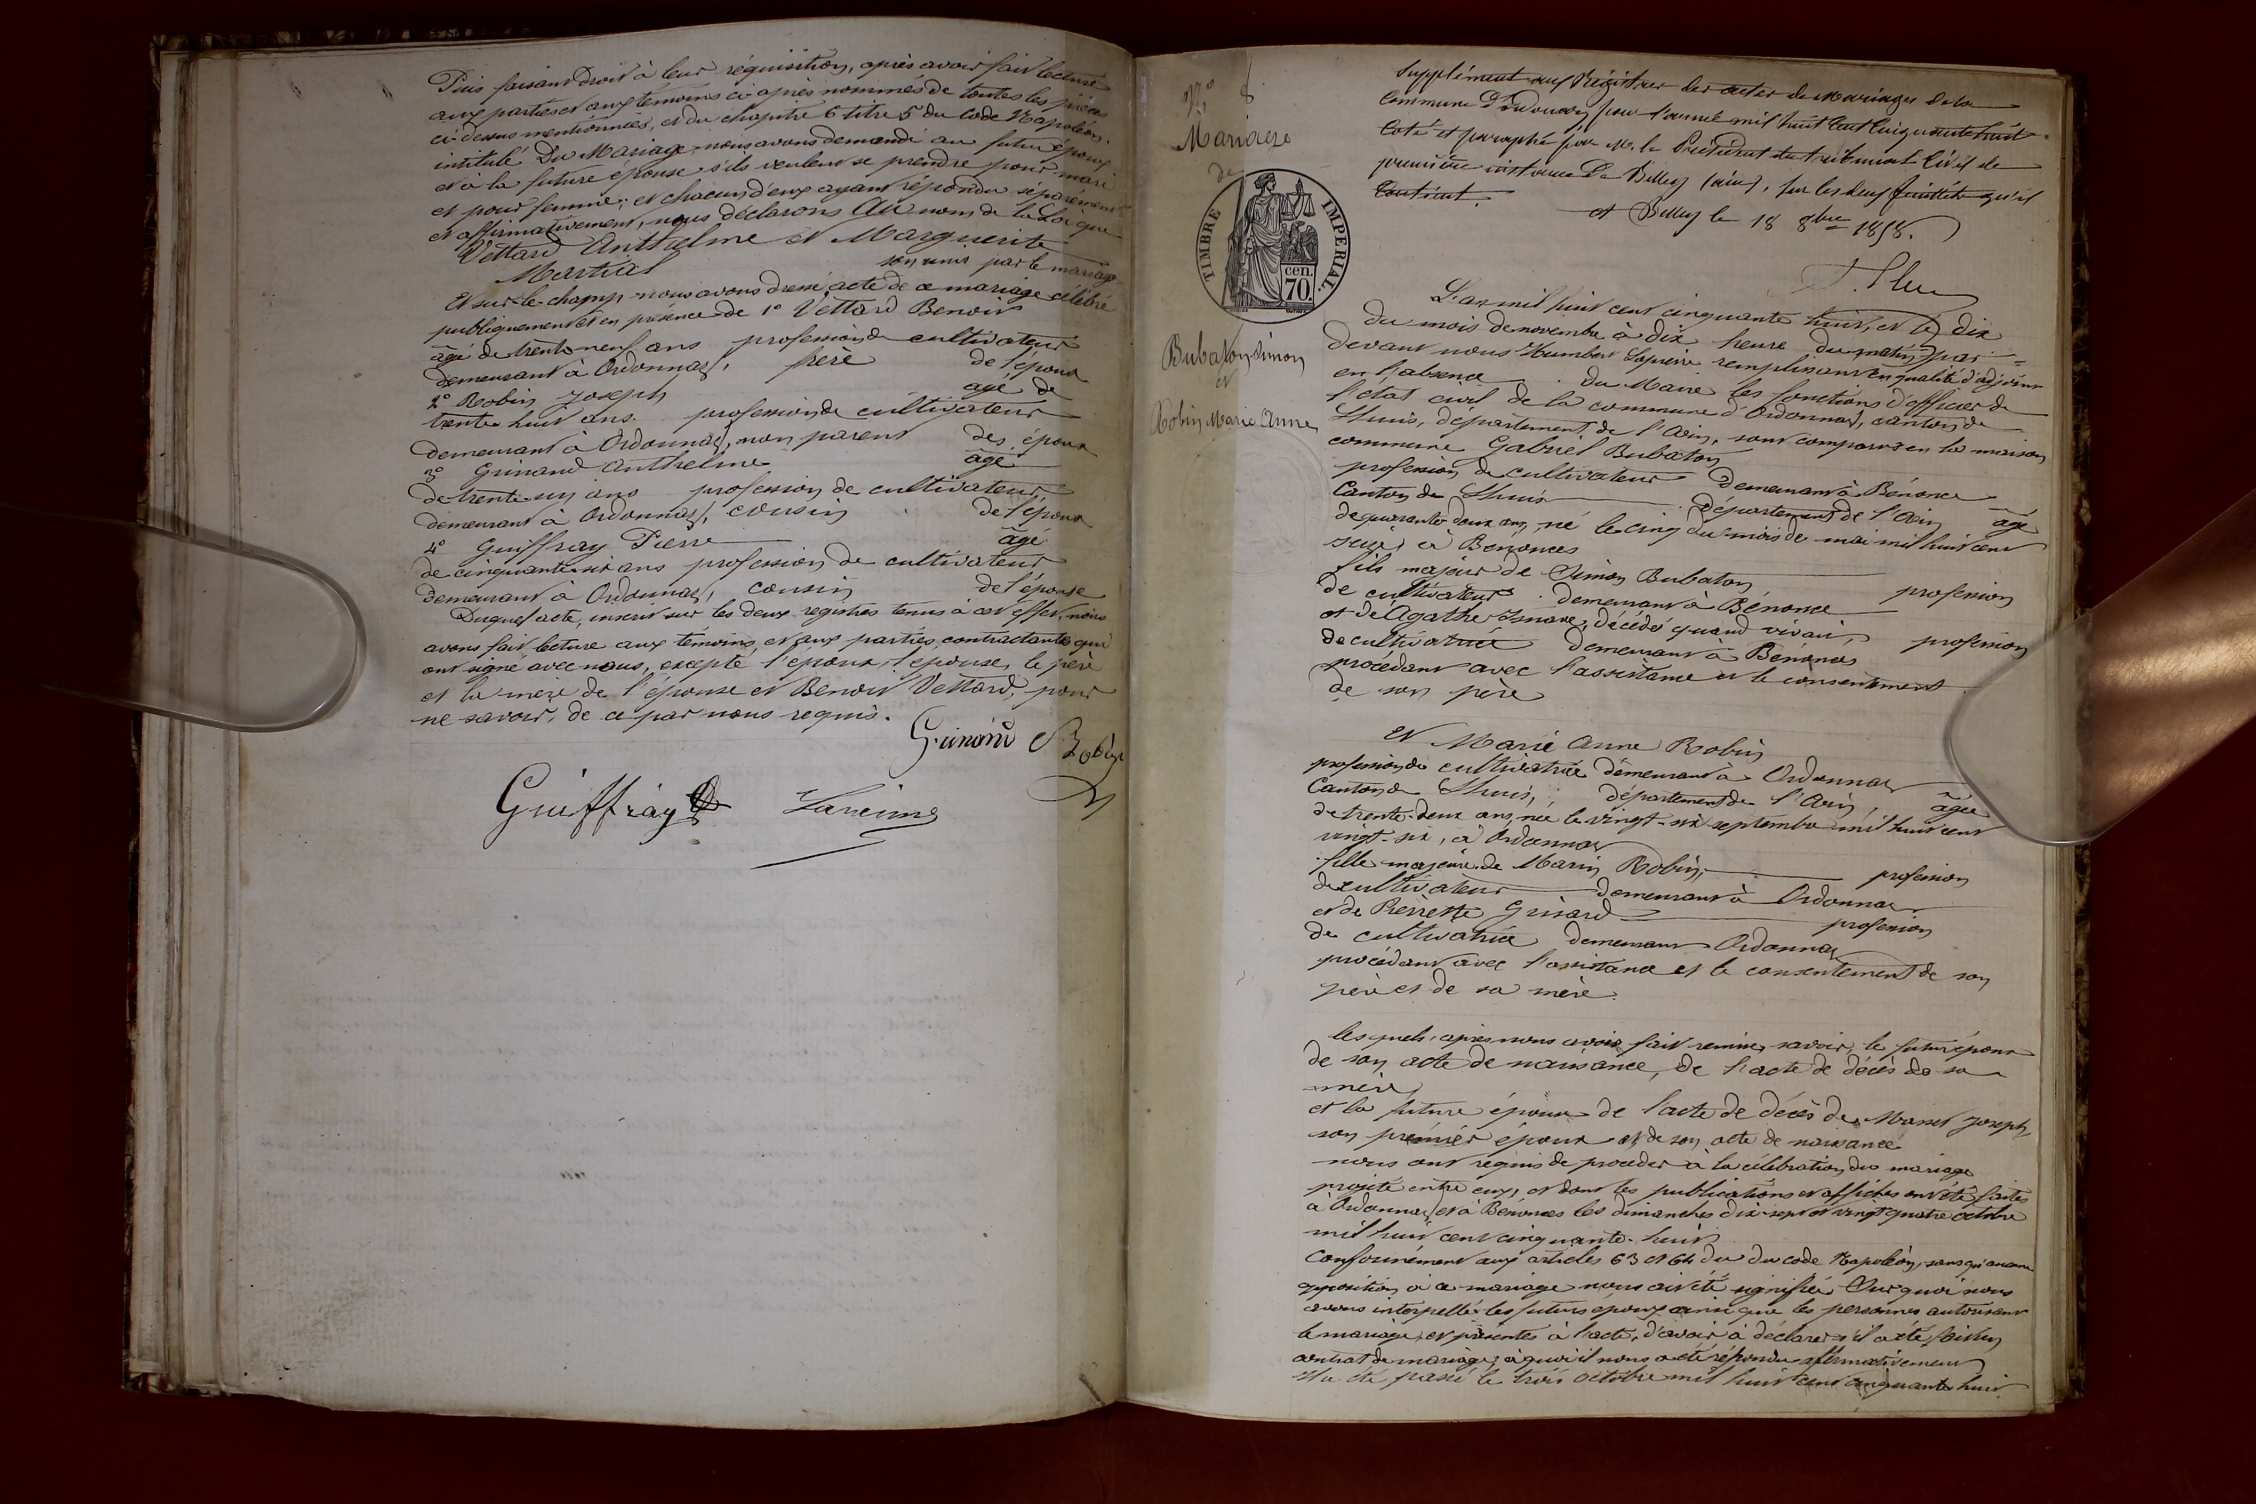 Puis faisant droit à leur réquisition, après avoir fait lecture
aux parties et aux témoins ci-après nommés de toutes les pièces
ci-dessus mentionnées, et du chapitre 6 titre 5 du Code Napoléon,
intitulé Du Mariage, nous avons demandé au futur époux
et à la future épouse s'ils veulent se prendre pour mari
et pour femme; et chacun d'eux ayant répondu séparément
et affirmativement, nous déclarons Au nom de la Loi que
Vettard Anthelme et Marguerite
Martial son unis par le mariage
Et sur-le-champ nous avons dressé acte de ce mariage célébré
publiquement et en présence de 1° Vettard Benoit
âgé de trente neuf ans profession de cultivateur
demeurant à Ordonnaz, frère de l'époux
2° Robin Joseph âgé de
trente huit ans profession de cultivateur
demeurant à Ordonnaz, non parent des époux
3° Grinand Anthelme âgé
de trente un ans profession de cultivateur,
demeurant à Ordonnaz, cousin de l'époux
4° Guiffray Pierre âgé
de cinquante six ans profession de cultivateur
demeurant à Ordonnaz, cousin de l'épouse
Duquel acte, inscrit sur les deux registres tenus à cet effet, nous
avons fait lecture aux témoins, et aux parties contractantes qui
ont signé avec nous, excepté l'époux, l'épouse, le père
et la mère de l'épouse et Benoit Vettard, pour
ne savoir, de ce par nous requis.
Grinand Robin
Guiffray
N° 8
Mariage
de
TIMBRE IMPERIAL.
cen.
70.
Bubaton Simon
et
Robin Marie Anne
Supplément aux Régistres des actes de Mariages de la
Commune d'Ordonnaz, pour l'année mil huit Cent Cinquante huit
Coté et paraphé par Mr. le Président du tribunal Civil de
première instance De Belley (ain), sur les deux feuillets qu'il
Contient.
à Belley le 18 8bre 1858.
L'an mil huit cent cinquante huit, et le dix
du mois de novembre à dix heure du matin, par
devant nous Humbert remplissant en qualité d'adjoint
en l'absence du Maire les fonctions d'officier de
l'état civil de la commune d'Ordonnaz, canton de
Lhuis, département de l'Ain, sont comparus en la maison
commune Gabriel Bubaton
profession de cultivateur demeurant à Bénonce
Canton de Lhuis département de l'Ain âgé
de quarante deux ans, né le cinq du mois de mai mil huit cent
seize à Bénonces
fils majeur de Simon Bubaton profession
de cultivateur demeurant à Bénonce
et de Agathe décédé quand vivait, profession
de cultivatrice demeurant à Bénonces
procédant avec l'assistance et le consentement
de son père
et Marie Anne Robin
profession de cultivatrice demeurant à Ordonnaz
Canton de Lhuis, département de l'Ain, âgée
de trente-deux ans, née le vingt-six septembre mil huit cent
vingt-six, à Ordonnaz
fille majeure de Marin Robin, profession
de cultivateur demeurant à Ordonnaz
et de Pierrette Grinard profession
de cultivatrice demeurant Ordonnaz
procédant avec l'assistance et le consentement de son
père et de sa mère.
Lesquels, après nous avoir fait remise, savoir, le futur époux
de son acte de naissance, de l'acte de décès de sa
mère,
et la future épouse de l'acte de décès de Joseph,
son premier époux et de son acte de naissance
nous ont requis de procéder à la célébration du mariage
projeté entre eux, et dont les publications et affiches ont été faites
à Ordonnaz et à Bénonces les dimanches dix-sept et vingt quatre octobre
mil huit cent cinquante-huit
Conformément aux articles 63 et 64 du du code Napoléon, sans qu'aucune
opposition à ce mariage nous ait été signifiée. Sur quoi nous
avons interpellé les futurs époux ainsi que les personnes autorisant
le mariage, et présentes à l'acte, d'avoir à déclarer s'il a été fait un
contrat de mariage; à quoi il nous a été répondu affirmativement
et a été passé le trois octobre mil huit cent cinquante huit